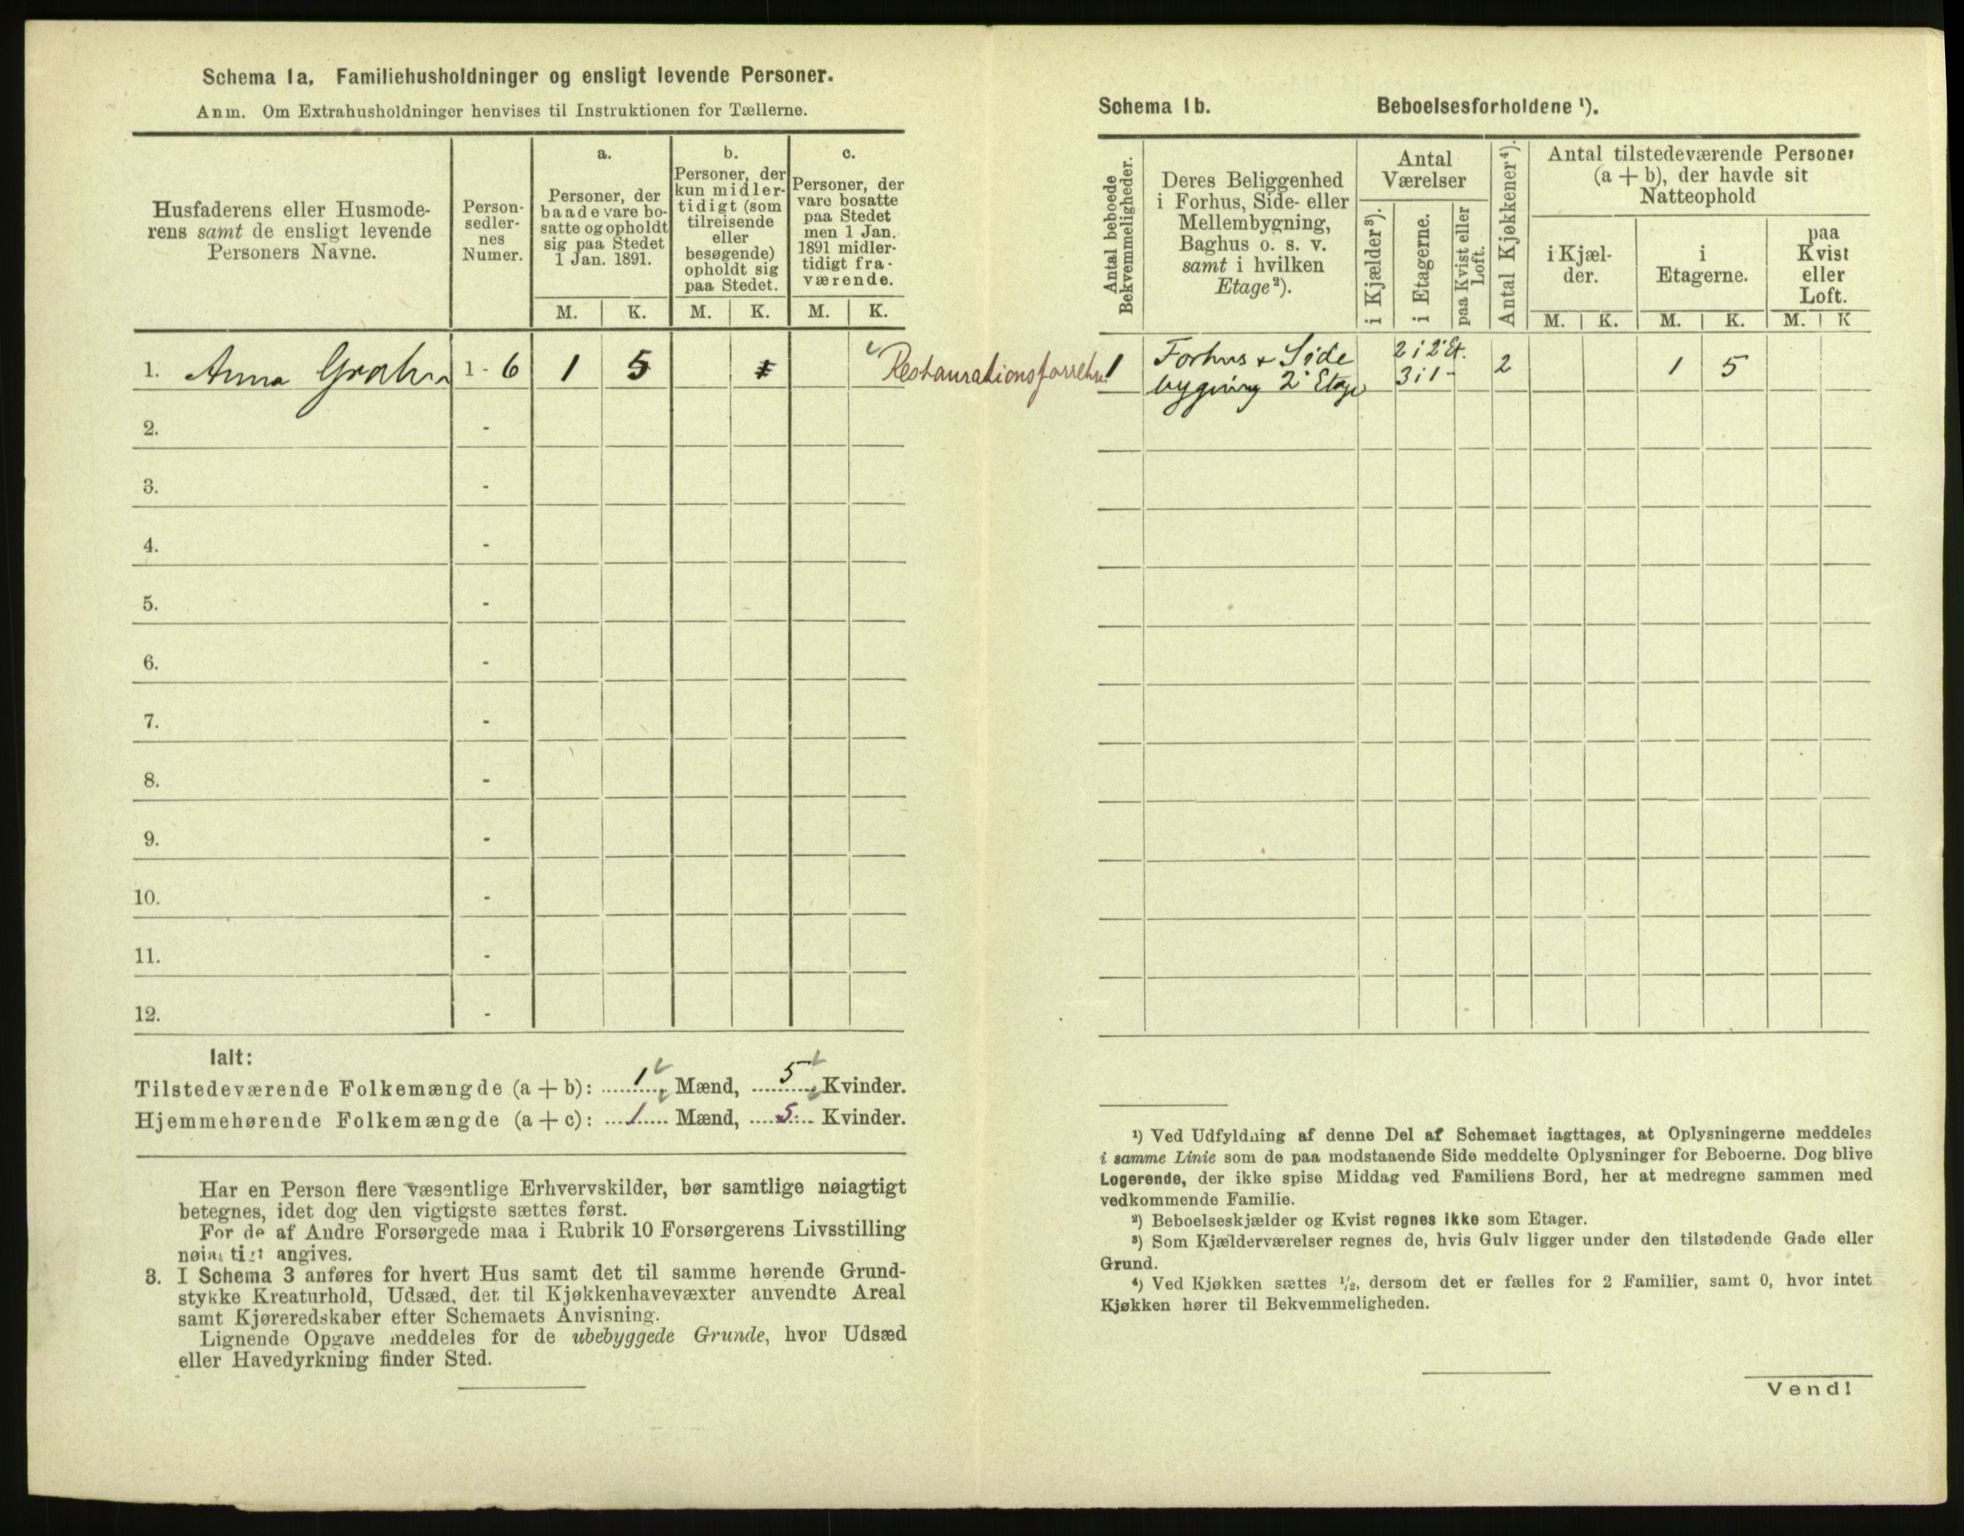 Schema 1a. Familiehusholdninger og ensligt levende Personer.
Anm. Om Extrahusholdninger henvises til Instruktionen for Tællerne.
Husfaderens eller Husmode-
rens samt de ensligt levende
Personers Navne.
Person-
sedler-
nes
Numer.
a.
Personer, der
baade vare bo-
satte og opholdt
sig paa Stedet
1 Jan. 1891.
b.
Personer, der
kun midler-
tidigt (som
tilreisende
eller
besøgende)
opholdt sig
paa Stedet.
c.
Personer, der
vare bosatte
paa Stedet
men 1 Jan.
1891 midler-
tidigt fra-
værende.
M. K. M. K. M. K.
1. Anna 1 - 6 1 5
2. -
3. -
4. -
5. -
6. -
7. -
8. -
9. -
10. -
11. -
12. -
Ialt:
Tilstedeværende Folkemængde (a + b): 1 Mænd, 5 Kvinder.
Hjemmehørende Folkemængde (a + c): 1 Mænd, 5 Kvinder.
Har en Person flere væsentlige Erhvervskilder, bør samtlige nøiagtigt
betegnes, idet dog den vigtigste sættes først.
For de af Andre Forsørgede maa i Rubrik 10 Forsørgerens Livsstilling
nøiagtigt angives.
3. I Schema 3 anføres for hvert Hus samt det til samme hørende Grund-
stykke Kreaturhold, Udsæd, det til Kjøkkenhavevæxter anvendte Areal
samt Kjøreredskaber efter Schemaets Anvisning.
Lignende Opgave meddeles for de ubebyggede Grunde, hvor Udsæd
eller Havedyrkning finder Sted.
Schema 1b. Beboelsesforholdene ¹).
Antal beboede
Bekvemmeligheder.
Deres Beliggenhed
i Forhus, Side- eller
Mellembygning,
Baghus o. s. v.
samt i hvilken
Etage²).
Antal
Værelser
i Kjælder³).
i Etagerne.
paa Kvist eller
Loft.
Antal Kjøkkener⁴).
Antal tilstedeværende Personer
(a + b), der havde sit
Natteophold
i Kjæl-
der.
i
Etagerne.
paa
Kvist
eller
Loft.
M. K. M. K. M. K
1 Forhus & Side 2 i 2' Et. 2 1 5
bygning 2' Etage 3 i 1 -
¹) Ved Udfyldning af denne Del af Schemaet iagttages, at Oplysningerne meddeles
i samme Linie som de paa modstaaende Side meddelte Oplysninger for Beboerne. Dog blive
Logerende, der ikke spise Middag ved Familiens Bord, her at medregne sammen med
vedkommende Familie.
²) Beboelseskjælder og Kvist regnes ikke som Etager.
³) Som Kjælderværelser regnes de, hvis Gulv ligger under den tilstødende Gade eller
Grund.
⁴) Ved Kjøkken sættes ½, dersom det er fælles for 2 Familier, samt 0, hvor intet
Kjøkken hører til Bekvemmeligheden.
Vend!